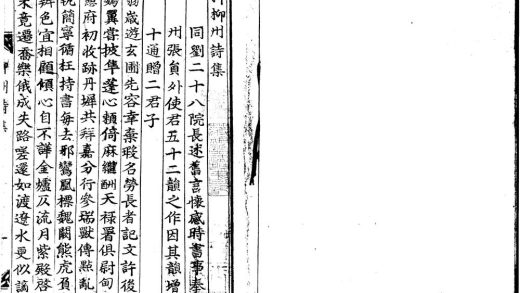 柳州詩集
同劉二十八院長述舊言懷感時書事奉
州張員外使君五十二韻之作因其韻增
十通贈二君子
歲遊玄圃先容幸棄瑕名勞長者記文許後
翼嘗披隼蓬心類倚麻繼酬天祿署俱尉甸
府初收跡丹墀共拜嘉分行參瑞獸傳點亂
執簡寧循枉持書每去邪鸞鳳標魏闕熊虎負
辨色宜相顧傾心自不譁金爐仄流月紫殿啓
未竟遷喬樂俄成失路嗟還如渡遼水更似謫